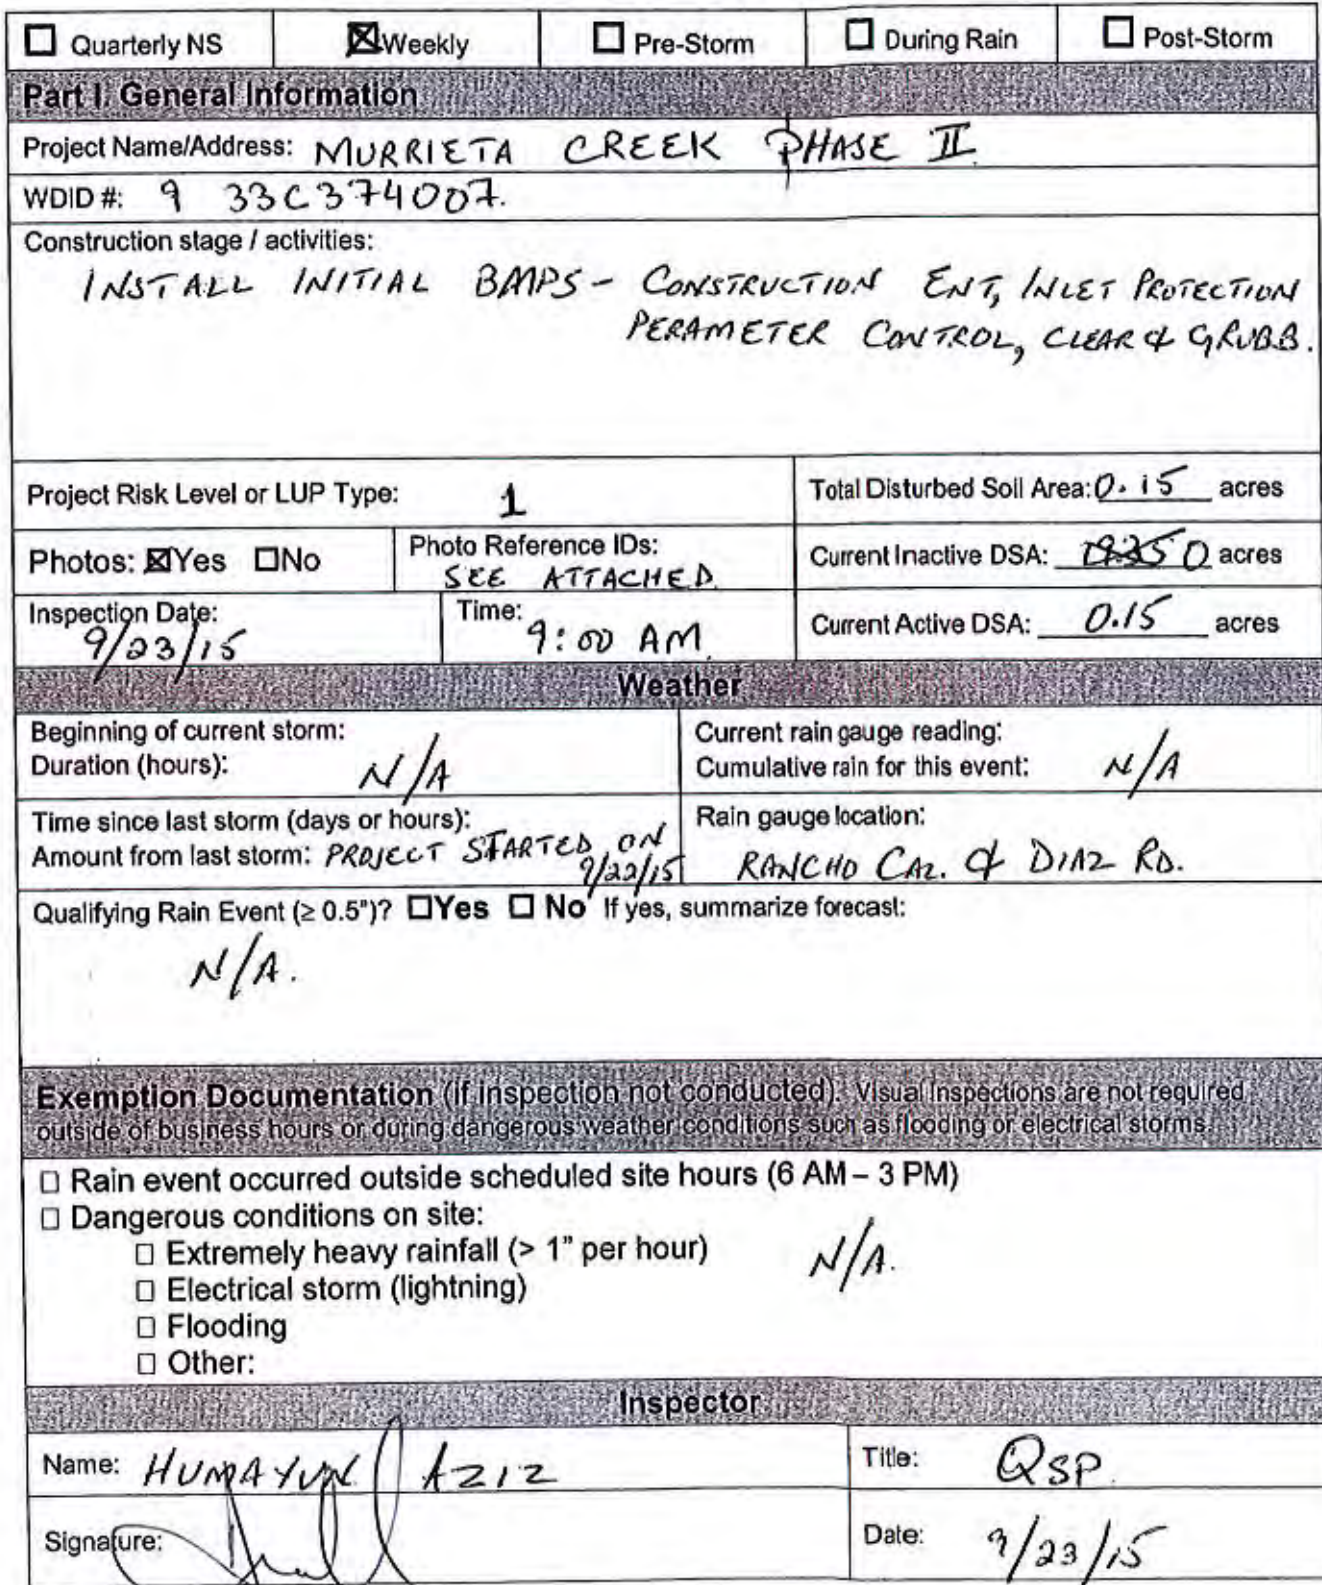 ☐ Quarterly NS ☒ Weekly ☐ Pre-Storm ☐ During Rain ☐ Post-Storm
Part I. General Information
Project Name/Address: MURRIETA CREEK PHASE II
WDID #: 9 33C374007.
Construction stage / activities:
INSTALL INITIAL BMPS - CONSTRUCTION ENT, INLET PROTECTION
PERAMETER CONTROL, CLEAR & GRUBB.
Project Risk Level or LUP Type: 1
Total Disturbed Soil Area: 0.15 acres
Photos: ☒Yes ☐No
Photo Reference IDs:
SEE ATTACHED.
Current Inactive DSA: 0 acres
Inspection Date:
9/23/15
Time:
9:00 AM.
Current Active DSA: 0.15 acres
Weather
Beginning of current storm:
Duration (hours): N/A
Current rain gauge reading:
Cumulative rain for this event: N/A
Time since last storm (days or hours):
Amount from last storm: PROJECT STARTED ON
9/22/15
Rain gauge location:
RANCHO CAL. & DIAZ RD.
Qualifying Rain Event (≥ 0.5")? ☐Yes ☐ No If yes, summarize forecast:
N/A.
Exemption Documentation (if inspection not conducted). Visual inspections are not required
outside of business hours or during dangerous weather conditions such as flooding or electrical storms.
☐ Rain event occurred outside scheduled site hours (6 AM – 3 PM)
☐ Dangerous conditions on site:
☐ Extremely heavy rainfall (> 1" per hour) N/A.
☐ Electrical storm (lightning)
☐ Flooding
☐ Other:
Inspector
Name: HUMAYUN AZIZ
Title: QSP.
Signature:
Date: 9/23/15